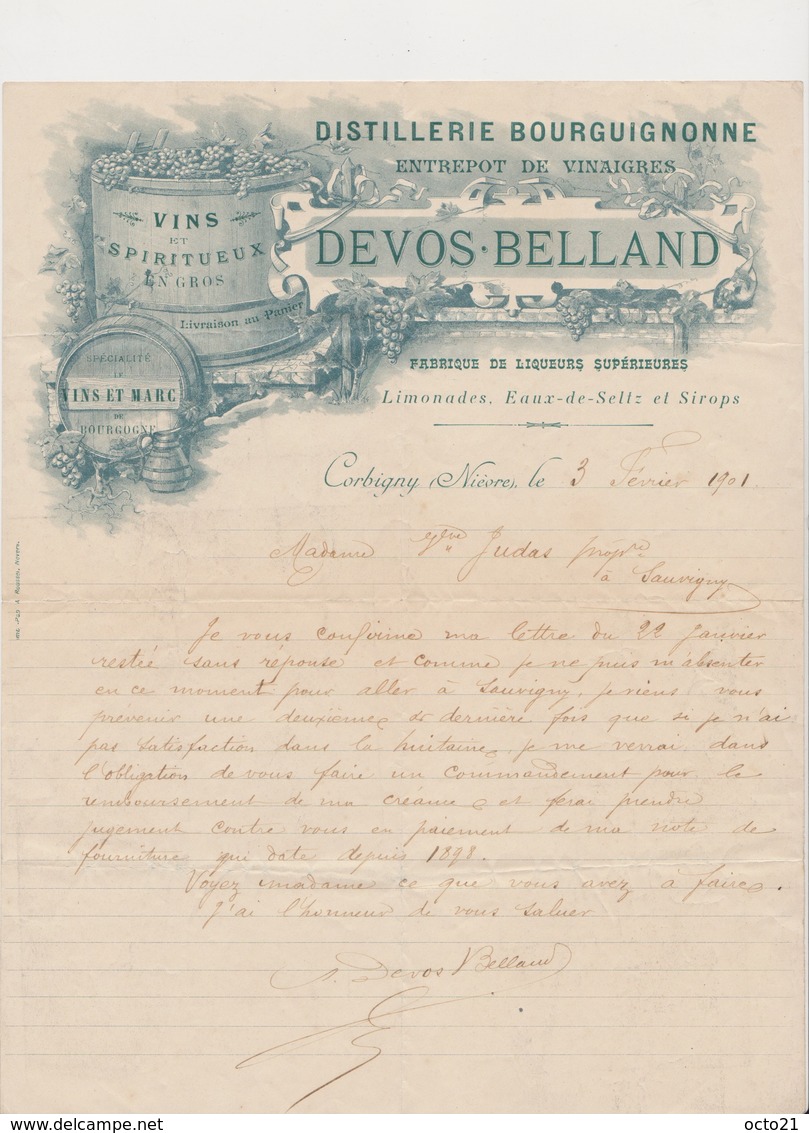 DISTILLERIE BOURGUIGNONNE
ENTREPOT DE VINAIGRES
DEVOS·BELLAND
VINS
ET
SPIRITUEUX
EN GROS
Livraison au Panier
SPÉCIALITÉ
DE
VINS ET MARC
DE
BOURGOGNE
FABRIQUE DE LIQUEURS SUPÉRIEURES
Limonades, Eaux-de-Seltz et Sirops
Corbigny (Nièvre), le 3 Février 1901
Madame Judas propre
à Sauvigny
Je vous confirme ma lettre du 22 Janvier
restée sans réponse et comme je ne puis m'absenter
en ce moment pour aller à Sauvigny, je viens vous
prévenir une deuxième & dernière fois que si je n'ai
pas satisfaction dans la huitaine, je me verrai dans
l'obligation de vous faire un commandement pour le
remboursement de ma créance et ferai prendre
jugement contre vous en paiement de ma note de
fourniture qui date depuis 1898.
Voyez madame ce que vous avez à faire.
J'ai l'honneur de vous saluer
Devos Belland
delcampe.net
octo21